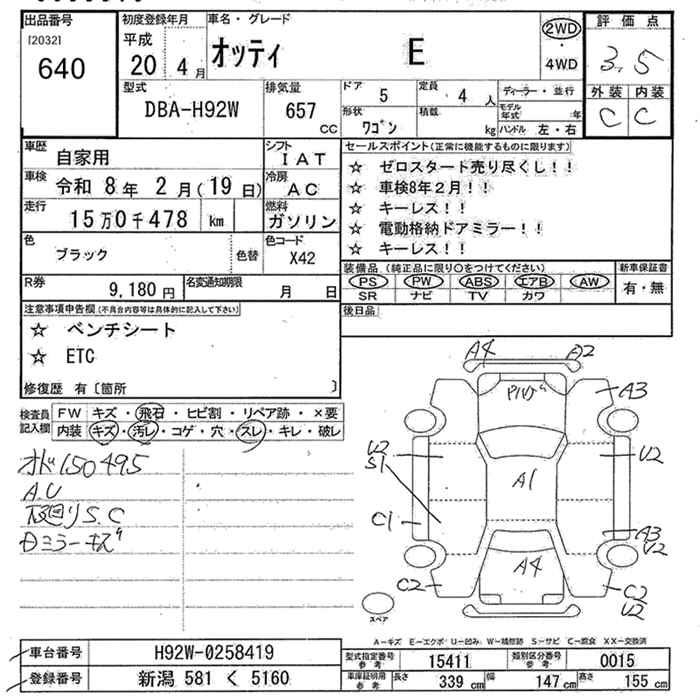 出品番号 初度登録年月 車名・グレード 評価点
[2032] 平成 2WD
640 20 4月 オッティ E ・ 3.5
4WD
型式 排気量 ドア 定員 ディーラー・並行 外装 内装
DBA-H92W 657 5 4人 モデル年式 年 C C
CC 形状 ワゴン 積載 kg ハンドル 左・右
車歴 自家用 シフト IAT セールスポイント(正常に機能するものに限り)
車検 令和 8年 2月(19日) 冷房 AC ☆ ゼロスタード売り尽くし!!
☆ 車検8年2月!!
走行 15万0千478 km 燃料 ガソリン ☆ キーレス!!
☆ 電動格納ドアミラー!!
色 ブラック 色替 色コード X42 ☆ キーレス!!
装備品(純正品に限り○をつけてください) 新車保証書
R券 9,180円 名変通知期限 月 日 PS PW ABS エアB AW 有・無
SR ナビ TV カワ
注意事項申告欄(不具合内容等は具体的に記入して下さい) 後日品
☆ ベンチシート
☆ ETC
修復歴 有〔箇所 〕
検査員記入欄 FW キズ・飛石・ヒビ割・リペア跡・×要
内装 キズ・汚レ・コゲ・穴・スレ・キレ・破レ
オド150495
A.U
下廻りS.C
Dミラーキズ
A4 A2
A3
U2 S1 A1 U2
C1 A3 U2
C2 A4 C2 U2
スペア
A-キズ E-エクボ U-凹み W-補修跡 S-サビ C-腐食 XX-交換済
車台番号 H92W-0258419 型式指定番号 参考 15411 類別区分番号 参考 0015
登録番号 新潟 581 く 5160 車庫証明用 参考 長さ 339 cm 幅 147 cm 高さ 155 cm